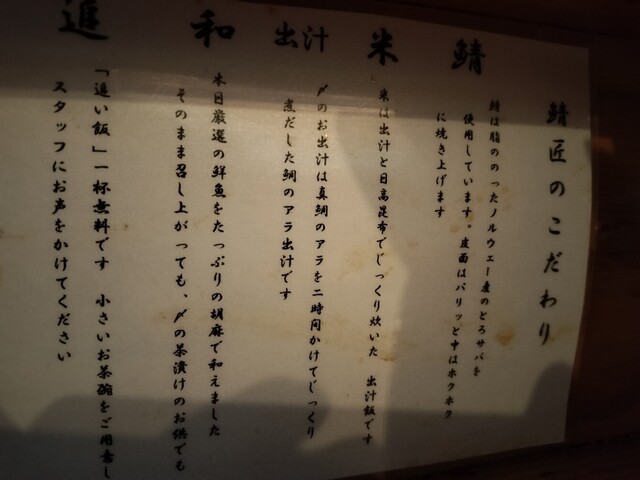 鯖匠のこだわり
鯖
鯖は脂ののったノルウェー産のとろサバを
使用しています。皮面はパリッと中はホクホク
に焼き上げます
米
米は出汁と日高昆布でじっくり炊いた 出汁飯です
出汁
〆のお出汁は真鯛のアラを二時間かけてじっくり
煮だした鯛のアラ出汁です
和
本日厳選の鮮魚をたっぷりの胡麻で和えました
そのまま召し上がっても、〆の茶漬けのお供でも
追
「追い飯」一杯無料です 小さいお茶碗をご用意し
スタッフにお声をかけてください